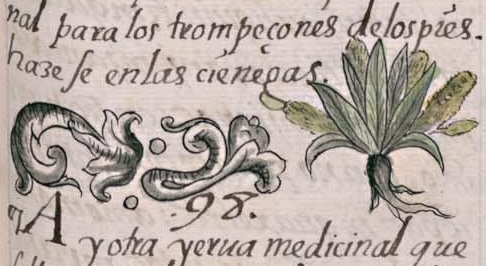 nal para los trompeçones delospies.
haze se enlas cienegas.
.98.
¶ A
y otra yerua medicinal que